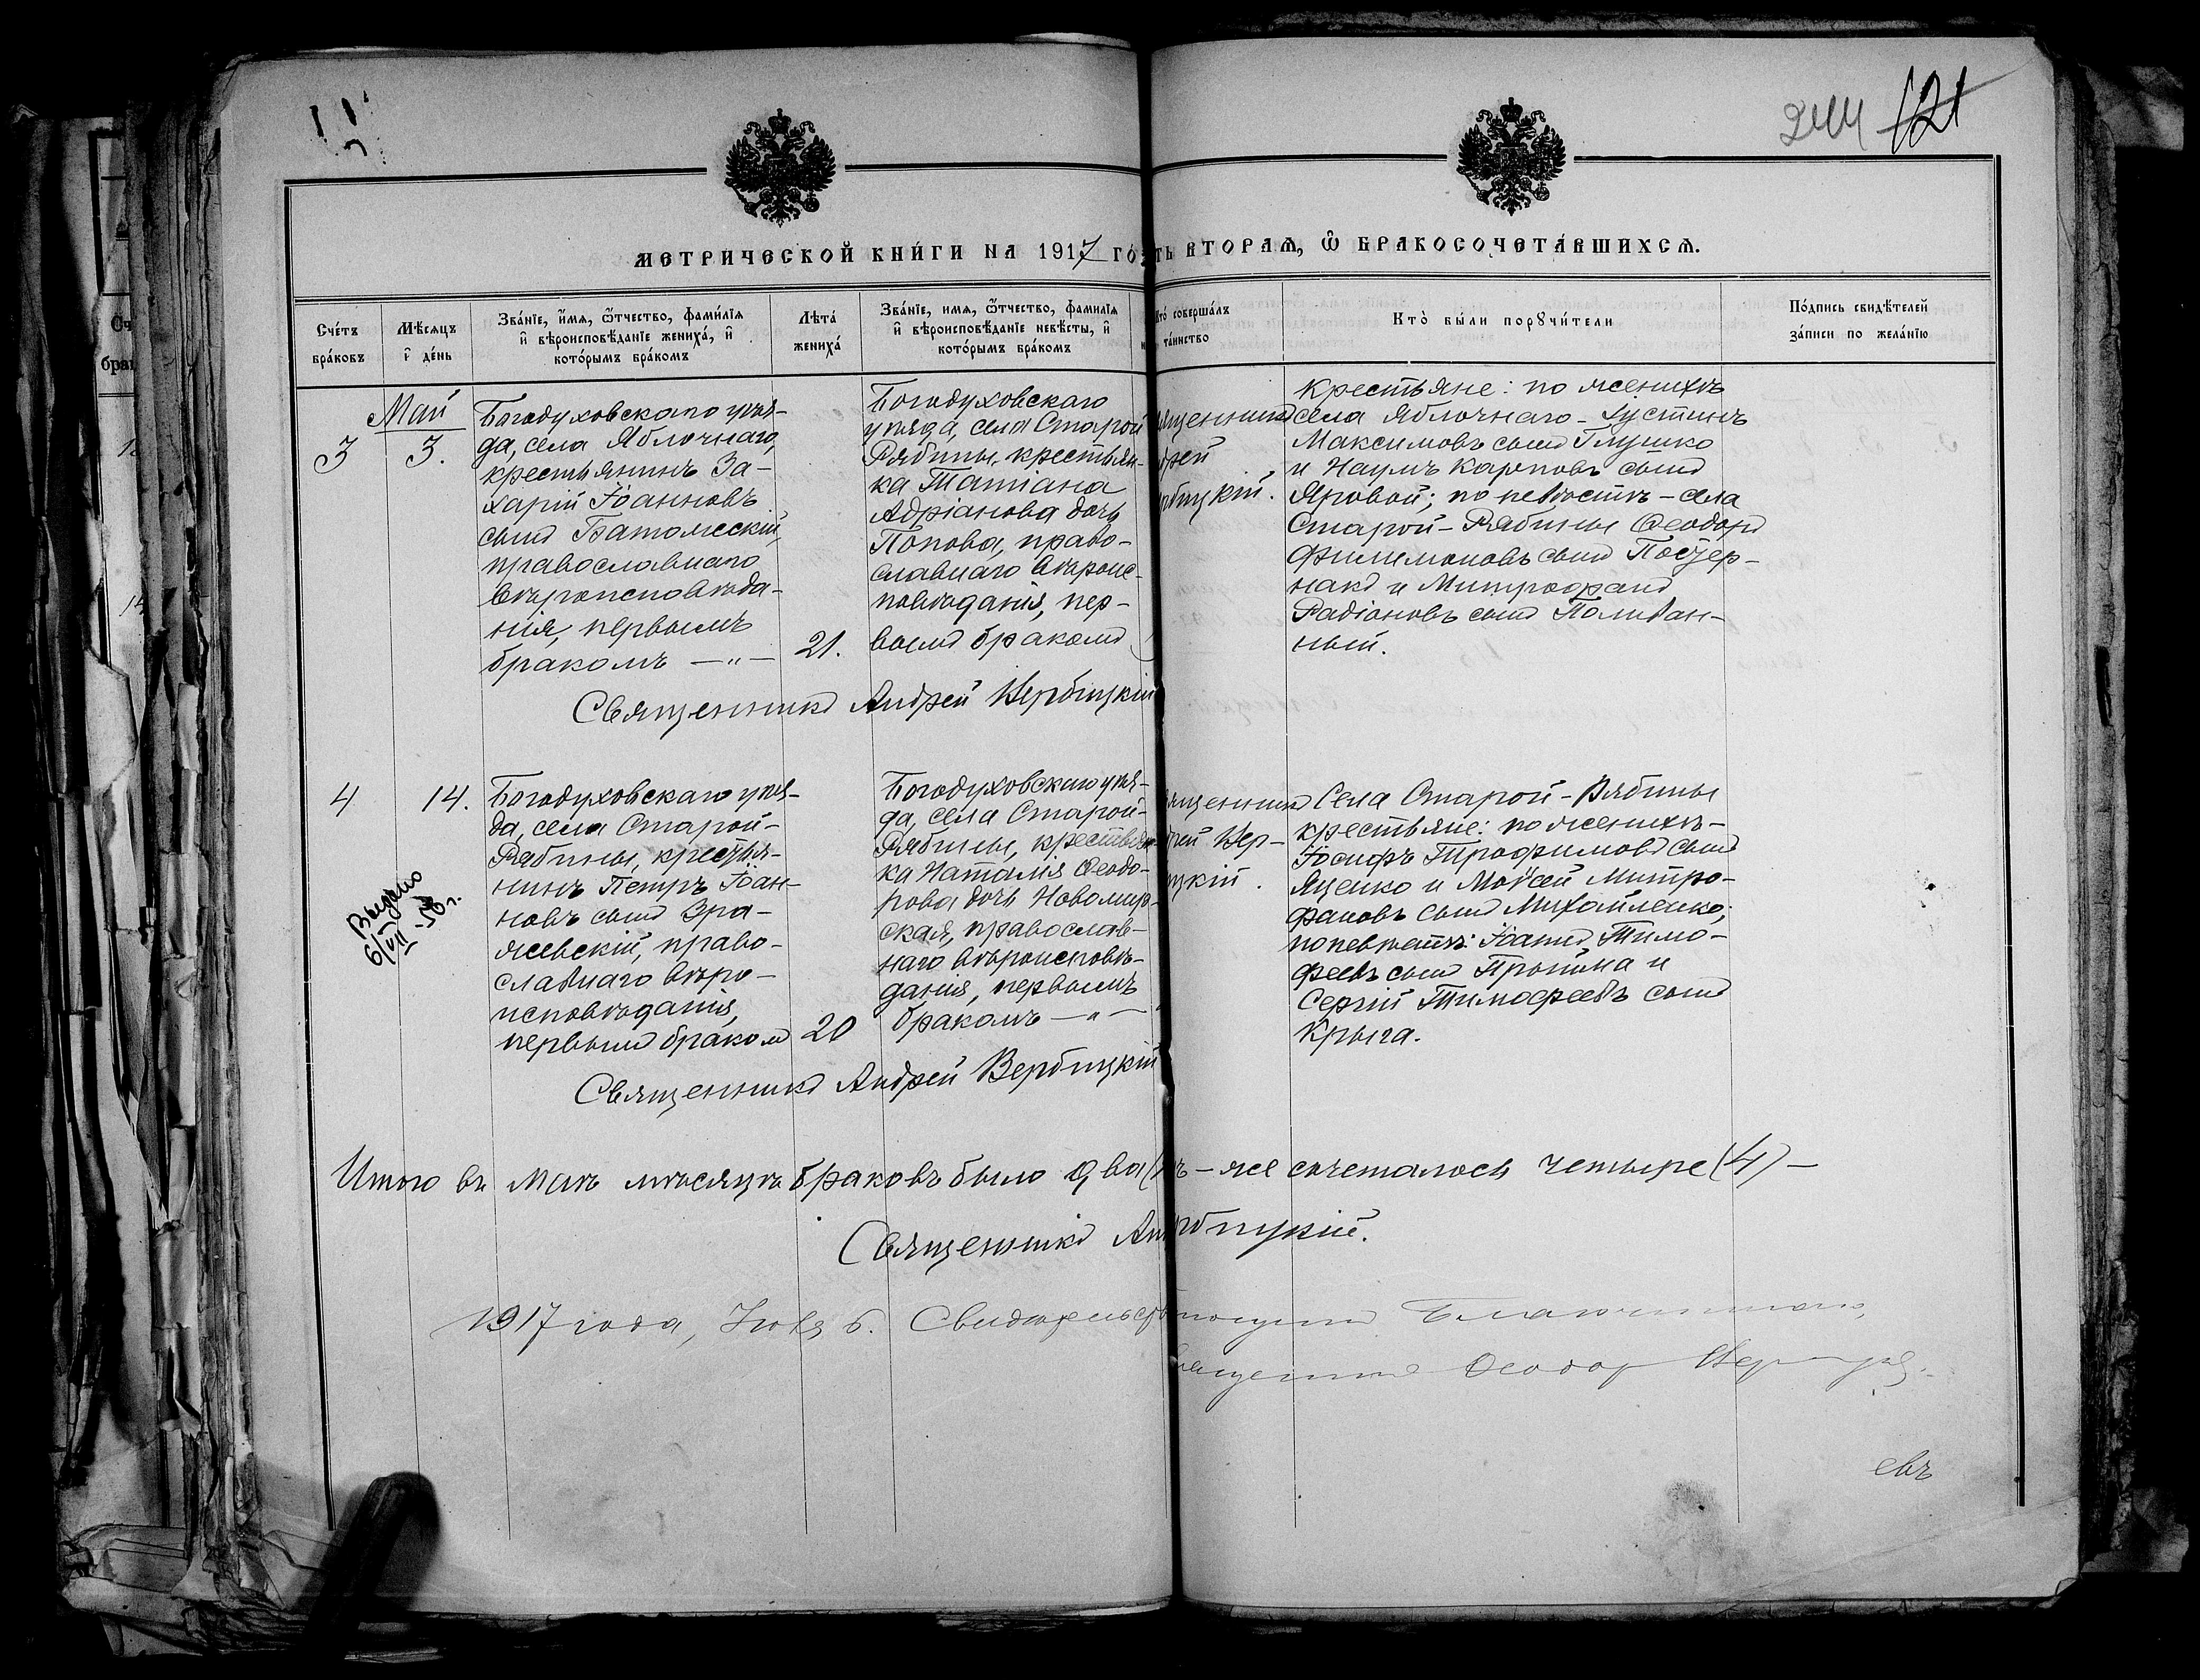 244 121
МЕТРИЧЕСКОЙ КНИ́ГИ НА 1917 ГО
ТЬ ВТОРАѦ, Ѿ БРАКОСОЧЕТА́ВШИХСѦ.
Сче́тъ
бра́ковъ
Мѣ́сѧцъ
и҆ де́нь
Зва́нїе, и҆́мѧ, ѻ҆́тчество, фами́лїѧ
и҆ вѣроисповѣ́данїе жениха́, и҆
кото́рымъ бра́комъ
Лѣта́
жениха́
Зва́нїе, имѧ, ѻ҆́тчество, фами́лїѧ
и҆ вѣроисповѣ́данїе невѣ́сты, и҆
кото́рымъ бра́комъ
то̀ соверша́лъ
та́инство
Кто̀ бы́ли порꙋчи́тели
По́дпись свидѣ́телей
за́писи по жела́нїю
Май
3
3.
Богодуховскаго уѣз-
да, села Яблочнаго,
крестьянинъ За-
харій Іоанновъ
сынъ Батожскій,
православнаго
вѣроисповѣда-
нія, первымъ
бракомъ —„—
21.
Богодуховскаго
уѣзда, села Старой
Рябины, крестьян-
ка Татіана
Адріанова дочь
Попова, право-
славнаго вѣроис-
повѣданія, пер-
вымъ бракомъ
ященникъ
дрей
рбицкій.
Крестьяне: по женихѣ
села Яблочнаго - Іустинъ
Максимовъ сынъ Глушко
и Наумъ Карповъ сынъ
Яровой; по невѣстѣ - села
Старой - Рябины Ѳеодоръ
Филимоновъ сынъ
и Митрофанъ
Радіоновъ сынъ Поливан-
ный.
Священникъ Андрей Вербицкій
4
14.
Выдано
6/VII -56 г.
Богодуховскаго уѣз-
да, села Старой-
Рябины, крестья-
нинъ Петръ Іоан-
новъ сынъ Зра-
жевскій, право-
славнаго вѣро-
исповѣданія,
первымъ бракомъ
20
Богодуховскаго уѣз-
да, села Старой-
Рябины, крестьян-
ка Наталія Ѳеодо-
рова дочь Новомир-
ская, православ-
наго вѣроисповѣ-
данія, первымъ
бракомъ —„—
ященникъ
дрей Вер-
цкій.
Села Старой - Рябины
крестьяне: по женихѣ -
Іосифъ Трофимовъ сынъ
Яценко и Моѵсей Митро-
фановъ сынъ Михайленко;
по невѣстѣ: Іоаннъ Тимо-
феевъ сынъ Пройма и
Сергій Тимофеевъ сынъ
Крыга.
Священникъ Андрей Вербицкій
Итого въ Маѣ мѣсяцѣ браковъ было два
ъ - же сочеталось четыре (4) —
Священникъ Ан
рбицкій.
1917 года, Іюня 6. Свидѣтельств
Благочинный,
Ѳеодор
евъ